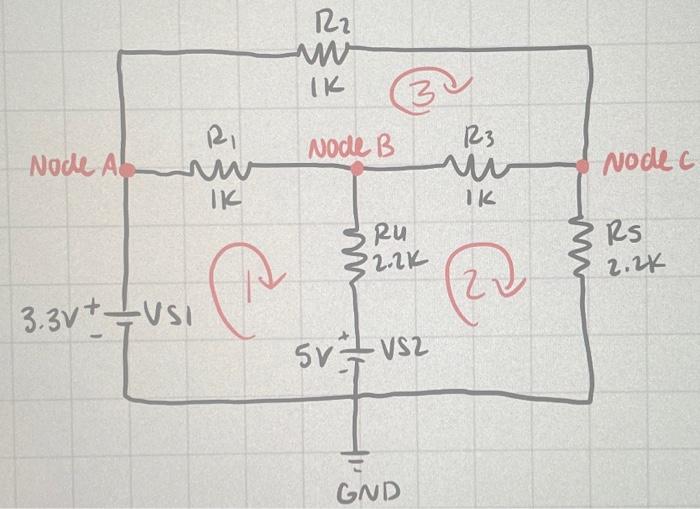 R2
1K
3
R1
Node B
R3
Node A
Node C
1K
1K
R4
2.2K
R5
2.2K
1
2
3.3V + VS1
-
5V + VS2
-
GND